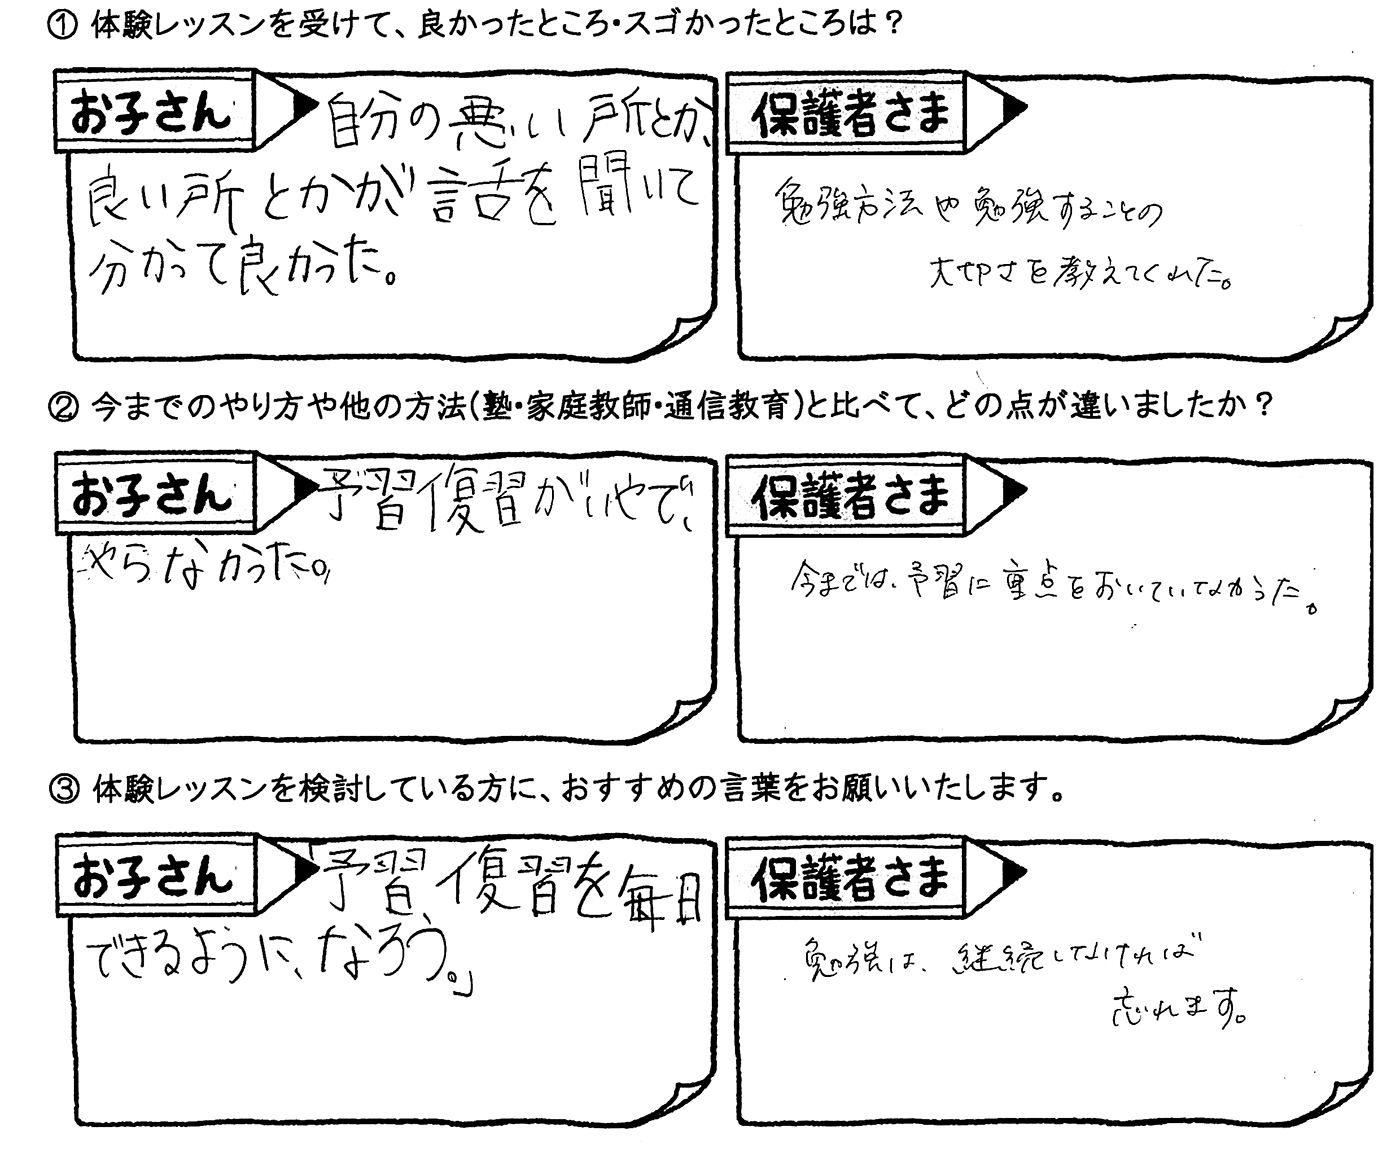 ① 体験レッスンを受けて、良かったところ・スゴかったところは？
お子さん
自分の悪い所とか、
良い所とかが、話を聞いて
分かって良かった。
保護者さま
勉強方法や勉強することの
大切さを教えてくれた。
② 今までのやり方や他の方法(塾・家庭教師・通信教育)と比べて、どの点が違いましたか？
お子さん
予習復習がいやで、
やらなかった。
保護者さま
今までは、予習に重点をおいていなかった。
③ 体験レッスンを検討している方に、おすすめの言葉をお願いいたします。
お子さん
「予習、復習を毎日
できるように、なろう。」
保護者さま
勉強は、継続しなければ
忘れます。